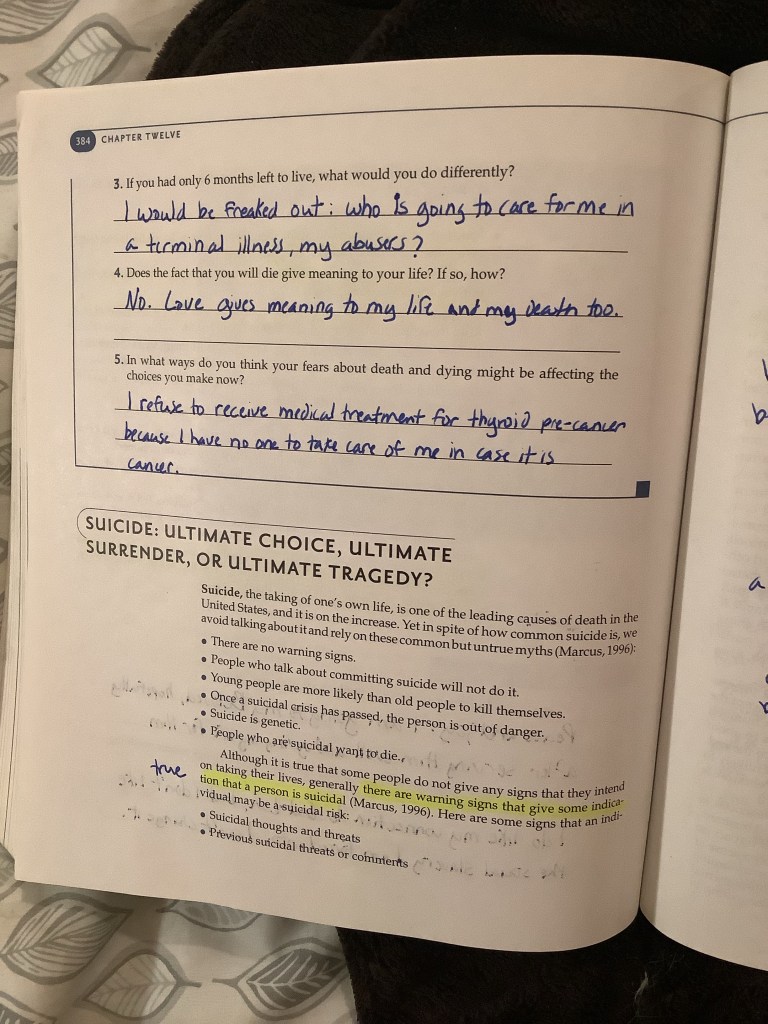 384 CHAPTER TWELVE
3. If you had only 6 months left to live, what would you do differently?
I would be freaked out: who is going to care for me in
a terminal illness, my abusers?
4. Does the fact that you will die give meaning to your life? If so, how?
No. Love gives meaning to my life and my death too.
5. In what ways do you think your fears about death and dying might be affecting the
choices you make now?
I refuse to receive medical treatment for thyroid pre-cancer
because I have no one to take care of me in case it is
cancer.
SUICIDE: ULTIMATE CHOICE, ULTIMATE
SURRENDER, OR ULTIMATE TRAGEDY?
Suicide, the taking of one's own life, is one of the leading causes of death in the
United States, and it is on the increase. Yet in spite of how common suicide is, we
avoid talking about it and rely on these common but untrue myths (Marcus, 1996):
• There are no warning signs.
• People who talk about committing suicide will not do it.
• Young people are more likely than old people to kill themselves.
• Once a suicidal crisis has passed, the person is out of danger.
• Suicide is genetic.
• People who are suicidal want to die.
Although it is true that some people do not give any signs that they intend
true
on taking their lives, generally there are warning signs that give some indica-
tion that a person is suicidal (Marcus, 1996). Here are some signs that an indi-
vidual may be a suicidal risk:
• Suicidal thoughts and threats
• Previous suicidal threats or comments
b
a